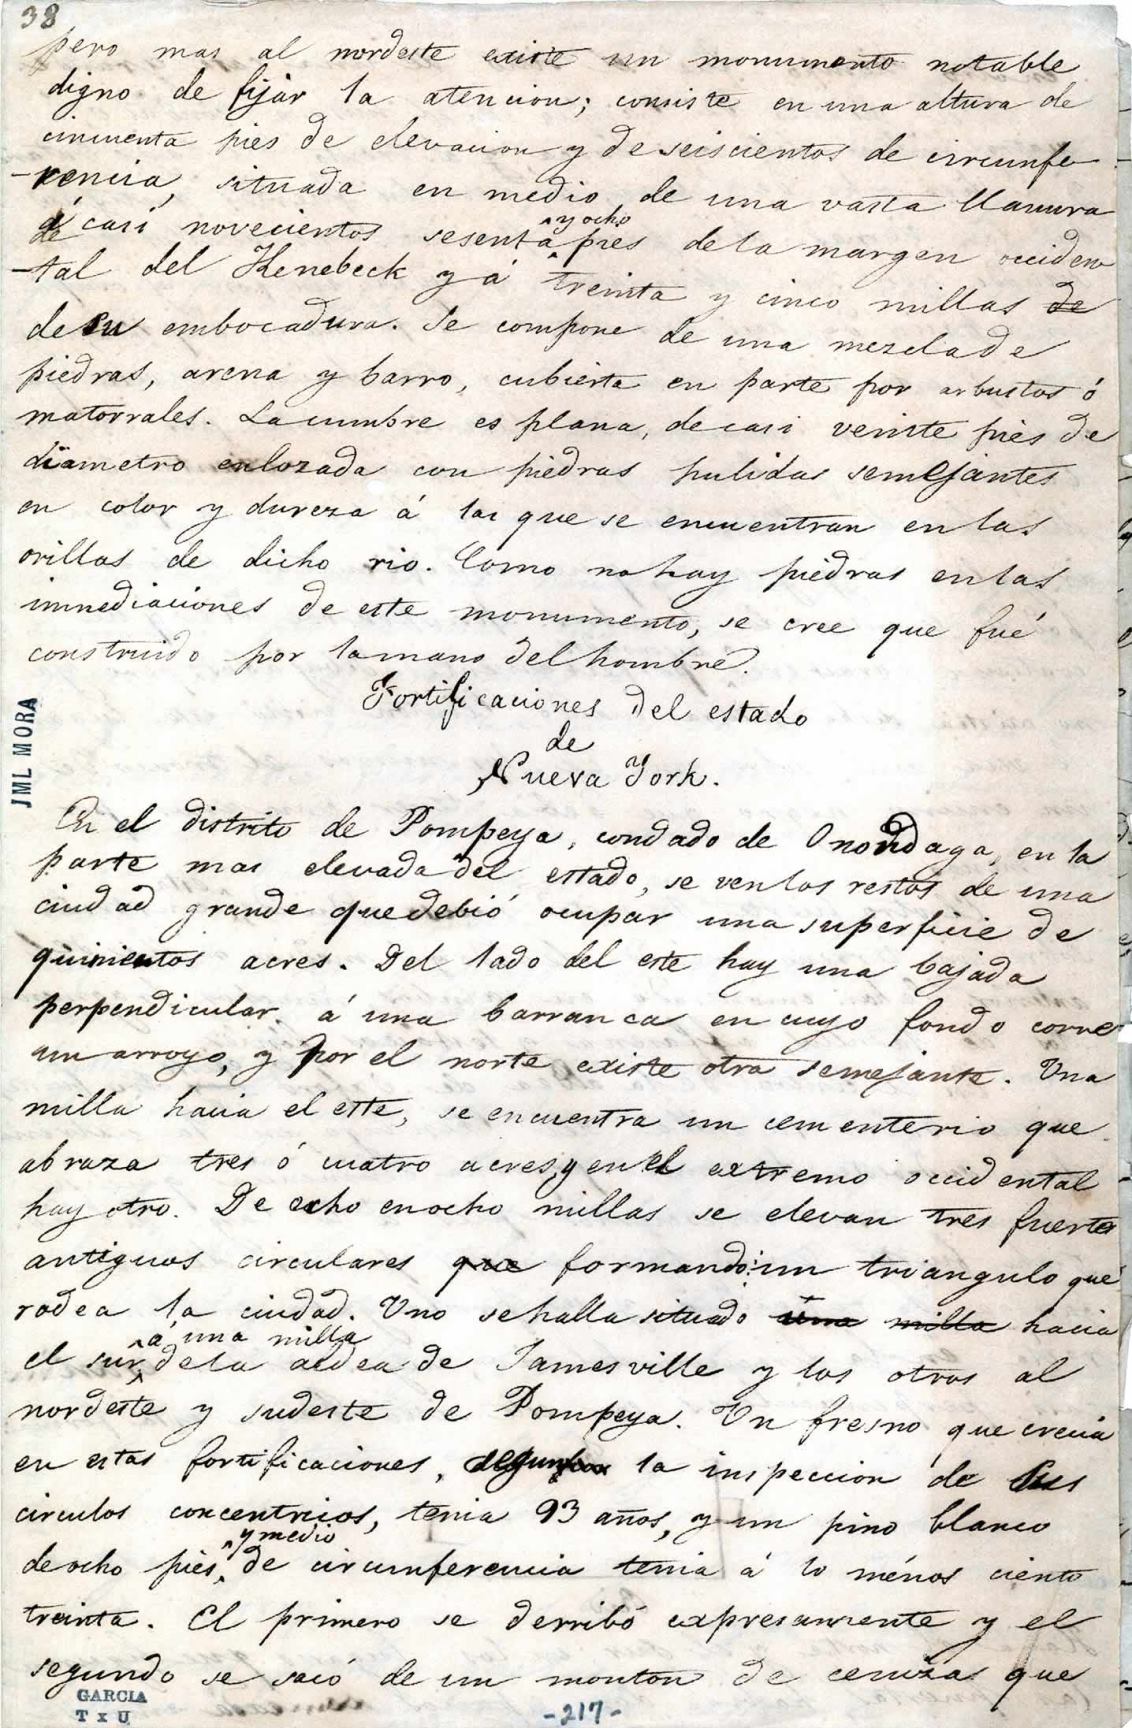 38
pero mas al nordeste existe un monumento notable
digno de fijar la atencion; consiste en una altura de
cincuenta pies de elevacion y de seiscientos de circunfe-
-rencia, situada en medio de una vasta llanura
á casi novecientos sesenta y ocho pies de la margen occiden
-tal del Kenebeck y á treinta y cinco millas de
de su embocadura. Se compone de una mezcla de
piedras, arena y barro, cubierta en parte por arbustos ó
matorrales. La cumbre es plana, de casi veinte pies de
diametro enlozada con piedras pulidas semejantes
en color y dureza á las que se encuentran en las
orillas de dicho rio. Como no hay piedras en las
inmediaciones de este monumento, se cree que fué
construido por la mano del hombre.
Fortificaciones del estado
de
Nueva York.
En el distrito de Pompeya, condado de Onondaga, en la
parte mas elevada del estado, se ven los restos de una
ciudad grande que debió ocupar una superficie de
quinientos acres. Del lado del este hay una bajada
perpendicular á una barranca en cuyo fondo corre
un arroyo, y por el norte existe otra semejante. Una
milla hacia el este, se encuentra un cementerio que
abraza tres ó cuatro acres, y en el extremo occidental
hay otro. De ocho en ocho millas se elevan tres fuertes
antiguos circulares que formando un triangulo que
rodea la ciudad. Uno se halla situado una milla hacia
el sur á una milla de la aldea de Jamesville y los otros al
nordeste y sudeste de Pompeya. Un fresno que crecia
en estas fortificaciones, segun la inspeccion de sus
circulos concentricos, tenia 93 años, y un pino blanco
de ocho pies y medio de circunferencia tenia á lo ménos ciento
treinta. El primero se derribó expresamente y el
segundo se sacó de un monton de cenizas que
JML MORA
GARCIA
T x U
-217-